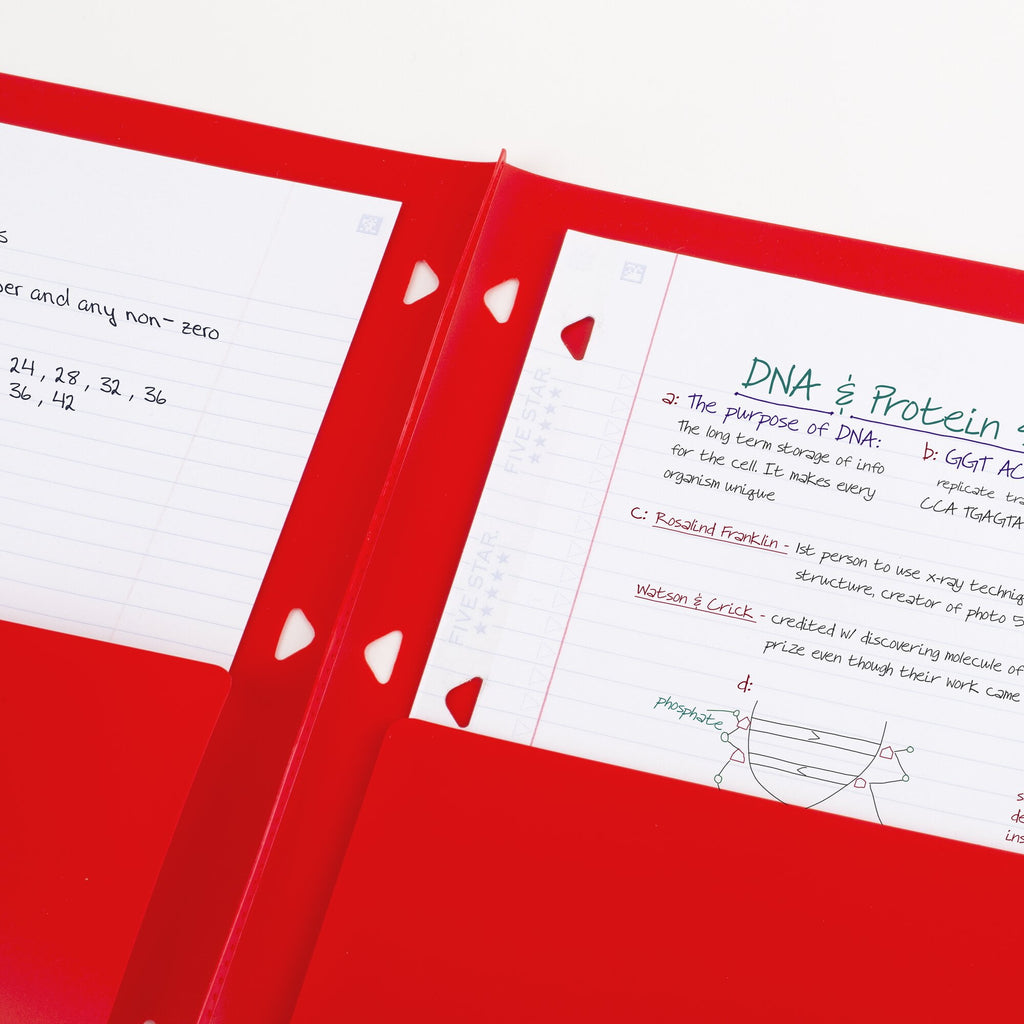 s
ber and any non-zero
24, 28, 32, 36
36, 42
FIVE STAR
FIVE STAR
DNA & Protein
a: The purpose of DNA:
The long term storage of info
for the cell. It makes every
organism unique
b: GGT AC
replicate tra
CCA TGAGTA
c: Rosalind Franklin - 1st person to use x-ray techniq
structure, creator of photo 5
Watson & Crick - credited w/ discovering molecule of
prize even though their work came
d:
phosphate
s
de
ins